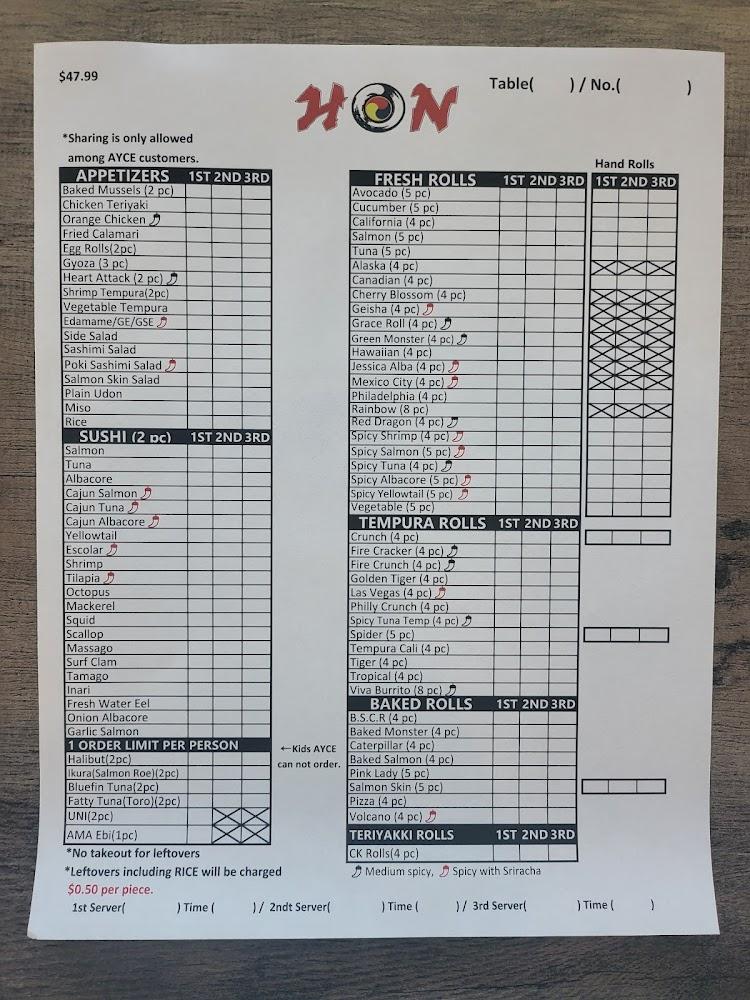 $47.99
HON
Table( ) / No.( )
*Sharing is only allowed
among AYCE customers.
APPETIZERS 1ST 2ND 3RD
Baked Mussels (2 pc)
Chicken Teriyaki
Orange Chicken
Fried Calamari
Egg Rolls(2pc)
Gyoza (3 pc)
Heart Attack (2 pc)
Shrimp Tempura(2pc)
Vegetable Tempura
Edamame/GE/GSE
Side Salad
Sashimi Salad
Poki Sashimi Salad
Salmon Skin Salad
Plain Udon
Miso
Rice
SUSHI (2 pc) 1ST 2ND 3RD
Salmon
Tuna
Albacore
Cajun Salmon
Cajun Tuna
Cajun Albacore
Yellowtail
Escolar
Shrimp
Tilapia
Octopus
Mackerel
Squid
Scallop
Massago
Surf Clam
Tamago
Inari
Fresh Water Eel
Onion Albacore
Garlic Salmon
1 ORDER LIMIT PER PERSON
Halibut(2pc)
Ikura(Salmon Roe)(2pc)
Bluefin Tuna(2pc)
Fatty Tuna(Toro)(2pc)
UNI(2pc)
AMA Ebi(1pc)
←Kids AYCE
can not order.
*No takeout for leftovers
*Leftovers including RICE will be charged
$0.50 per piece.
FRESH ROLLS 1ST 2ND 3RD
Hand Rolls
1ST 2ND 3RD
Avocado (5 pc)
Cucumber (5 pc)
California (4 pc)
Salmon (5 pc)
Tuna (5 pc)
Alaska (4 pc)
Canadian (4 pc)
Cherry Blossom (4 pc)
Geisha (4 pc)
Grace Roll (4 pc)
Green Monster (4 pc)
Hawaiian (4 pc)
Jessica Alba (4 pc)
Mexico City (4 pc)
Philadelphia (4 pc)
Rainbow (8 pc)
Red Dragon (4 pc)
Spicy Shrimp (4 pc)
Spicy Salmon (5 pc)
Spicy Tuna (4 pc)
Spicy Albacore (5 pc)
Spicy Yellowtail (5 pc)
Vegetable (5 pc)
TEMPURA ROLLS 1ST 2ND 3RD
Crunch (4 pc)
Fire Cracker (4 pc)
Fire Crunch (4 pc)
Golden Tiger (4 pc)
Las Vegas (4 pc)
Philly Crunch (4 pc)
Spicy Tuna Temp (4 pc)
Spider (5 pc)
Tempura Cali (4 pc)
Tiger (4 pc)
Tropical (4 pc)
Viva Burrito (8 pc)
BAKED ROLLS 1ST 2ND 3RD
B.S.C.R (4 pc)
Baked Monster (4 pc)
Caterpillar (4 pc)
Baked Salmon (4 pc)
Pink Lady (5 pc)
Salmon Skin (5 pc)
Pizza (4 pc)
Volcano (4 pc)
TERIYAKKI ROLLS 1ST 2ND 3RD
CK Rolls(4 pc)
Medium spicy, Spicy with Sriracha
1st Server( ) Time ( ) / 2ndt Server( ) Time ( ) / 3rd Server( ) Time ( )